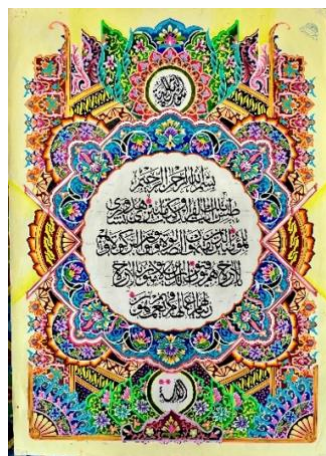 سورة النمل
بسم الله الرحمن الرحيم
طس تلك ايت القران وكتاب مبين هدى وبشرى
للمؤمنين الذين يقيمون الصلوة ويؤتون الزكوة وهم
بالاخرة هم يوقنون ان الذين لا يؤمنون بالاخرة
زينا لهم اعمالهم فهم يعمهون
الاية